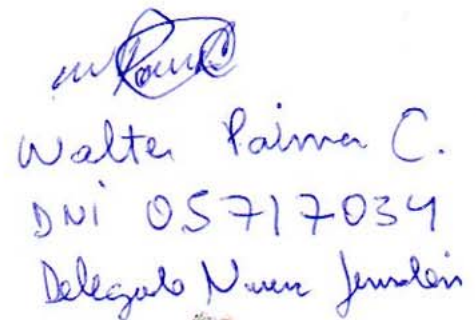 Walter Palma C.
DNI 05717034
Delegado Nueva Jerusalén